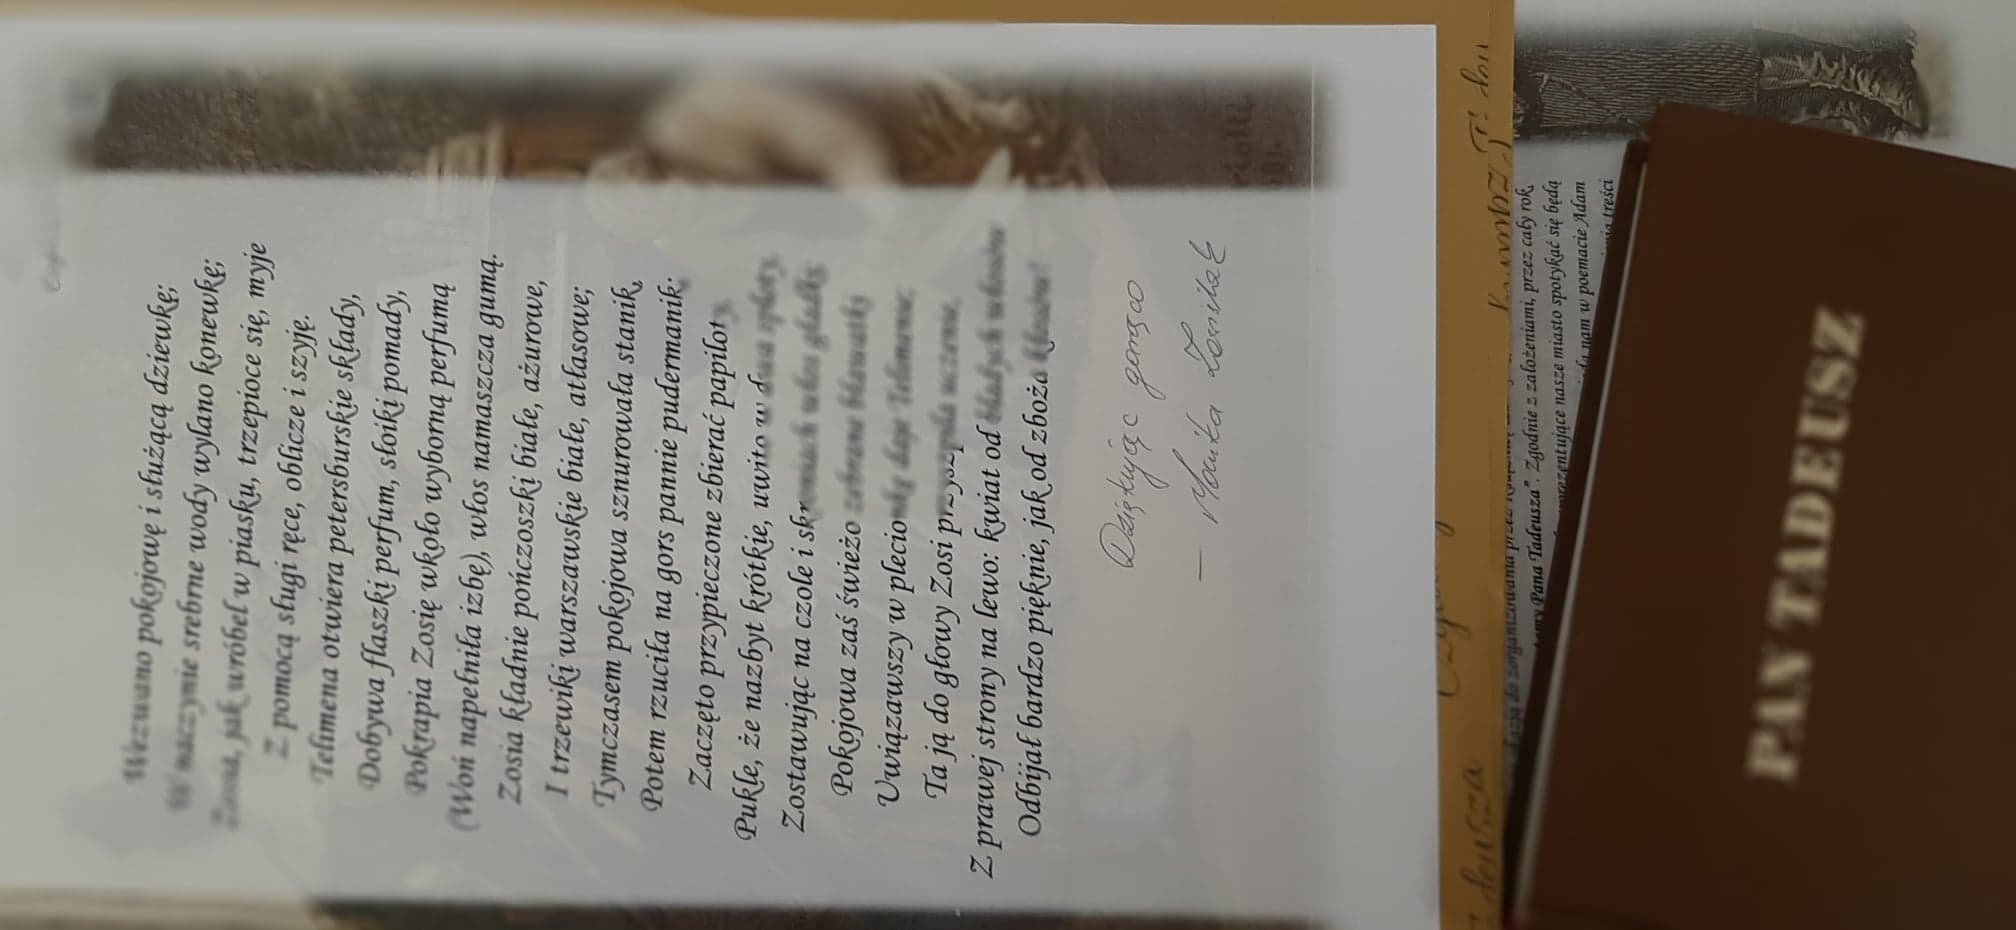 Wezwano pokojowę i służącą dziewkę;
W naczynie srebrne wody wylano konewkę;
Zosia, jak wróbel w piasku, trzepioce się, myje
Z pomocą sługi ręce, oblicze i szyję.
Telimena otwiera petersburskie składy,
Dobywa flaszki perfum, słoiki pomady,
Pokrapia Zosię wkoło wyborną perfumą
(Woń napełniła izbę), włos namaszcza gumą.
Zosia kładnie pończoszki białe, ażurowe,
I trzewiki warszawskie białe, atłasowe;
Tymczasem pokojowa sznurowała stanik,
Potem rzuciła na gors pannie pudermanik;
Zaczęto przypieczone zbierać papiloty,
Pukle, że nazbyt krótkie, uwito w dwa sploty,
Zostawując na czole i skroniach włos gładki;
Pokojowa zaś świeżo zebrane bławatki
Uwiązawszy w plecionkę daje Telimenie;
Ta ją do głowy Zosi przyszpila uczenie,
Z prawej strony na lewo: kwiat od bladych włosów
Odbijał bardzo pięknie, jak od zboża kłosów!
Dziękuję gorąco
—
Pana Tadeusza". Zgodnie z założeniami, przez cały rok,
reprezentujące nasze miasto spotykać się będą
nam w poemacie Adam
treści
PAN TADEUSZ